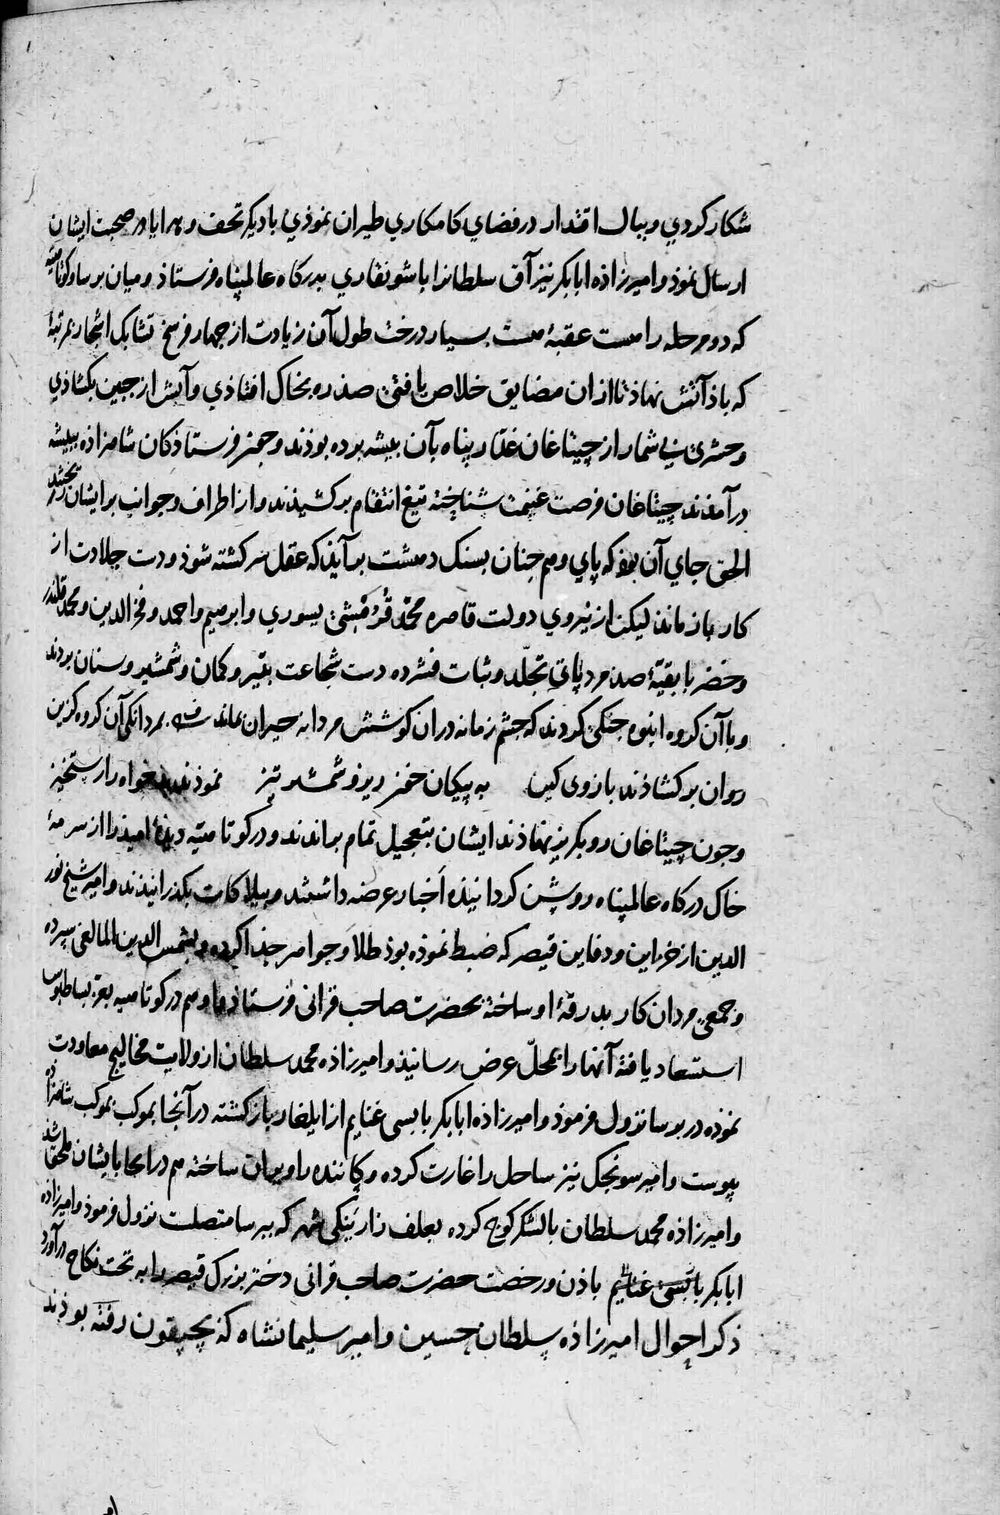 شکار کردی و ببال اقتدار در فضای کامکاری طیران نموذی با دیکر تحف و هدایا در صحبت ایشان
ارسال نموذ و امیرزاذه ابابکر نیز آق سلطانرا با شونقاری بدرکاه عالمپناه فرستاذ و میان برسا و کوتاهیه
که دو مرحله راهست عقبهٔ هست بسیار درخت طول آن زیادت از چهار فرسخ تشابک اشجار بمرتبهٔ
که باذ آتش نهاذ تا ازان مضایق خلاص یافتی صذ ره بخاک افتاذی و آبش از جبین بکشاذی
و حشری بی شمار از چیتاغان غدار پناه بآن بیشه برده بوذند و چون فرستاذکان شاهزاذه ببیشه
درآمدند چیتاغان فرصت غنیمت شناخته تیغ انتقام برکشیذند و از اطراف و جوانب بر ایشان ریختند
الحق جای آن بوذ که پای وهم چنان بسنک دهشت برآیذ که عقل سرکشته شوذ و دست جلادت از
کار باز مانذ لیکن از نیروی دولت قاهره محمد قشی یسوری و ابرهیم و احمد و فخر الدین و محمد قلندر
و خضر با بقیهٔ صذ مرد پای تجلد و ثبات فشرده دست شجاعت بتیر و کمان و شمشیر و سنان بردند
و با آن کروه انبوه جنکی کردند که چشم زمانه دران کوشش مردانه حیران بماند بمردانکی آن کروه کزین
روان برکشاذند بازوی کین به پیکان خونریز و شمشیر تیز نموذند بدخواه را رستخیز
و چون چیتاغان رو بکریز نهاذند ایشان بتعجیل تمام براندند و در کوتاهیه دیذهٔ امیذ را از سرمهٔ
خاک درکاه عالمپناه روشن کردانیذه اخبار عرضه داشتند و بیلاکات بکذرانیذند و امیر شیخ نور
الدین از خزاین و دفاین قیصر که ضبط نموذه بوذ طلا و جواهر جذا کرده و بشمس الدین المالغی سپرده
و جمعی مردان کار بدرقهٔ او ساخته بحضرت صاحب قرانی فرستاذ و او هم در کوتاهیه بعز بساط بوس
استسعاد یافته آنها را بمحل عرض رسانیذ و امیرزاذه محمد سلطان از ولایت مخالیج معاودت
نموذه در برسا نزول فرموذ و امیرزاذه ابابکر با بسی غنایم از ایلغار بازکشته در آنجا بموکب شاهزاذه
پیوست و امیر سونجک نیز ساحل را غارت کرده و کاننده را ویران ساخته هم در انجا بایشان ملحق شذ
و امیرزاذه محمد سلطان با لشکر کوچ کرده بعلف زار ینکی شهر که ببرسا متصلست نزول فرموذ و امیرزاذه
ابابکر با بسی غنایم باذن و رخصت حضرت صاحب قرانی دختر بزرک قیصر را به تحت نکاح درآورد
ذکر احوال امیرزاذه سلطان حسین و امیر سلیمانشاه که بچپقون رفته بوذند